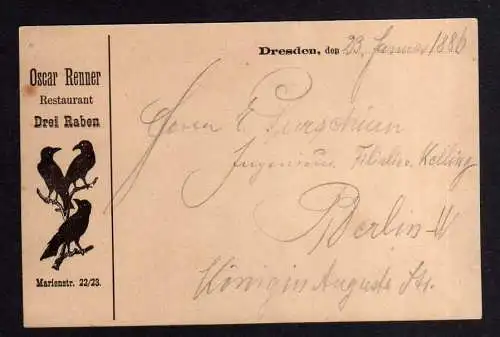 Oscar Renner
Restaurant
Drei Raben
Marienstr. 22/23.
Dresden, den 23. Januar 1886
Herrn E
Ingenieur. Filiale Kelling
Berlin W
Königin Augusta Str.